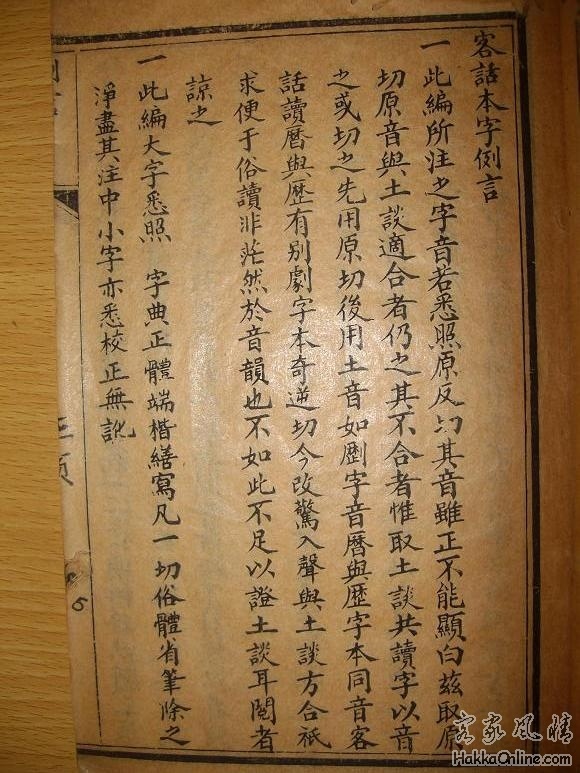 客話本字例言
一 此編所注之字音若悉照原反切其音雖正不能顯白茲取原
切原音與土談適合者仍之其不合者惟取土談共讀字以音
之或切之先用原切後用土音如䥶字音曆與歷字本同音客
話讀曆與歷有別劇字本奇逆切今改驚入聲與土談方合祇
求便于俗讀非茫然於音韻也不如此不足以證土談耳閱者
諒之
一 此編大字悉照 字典正體端楷繕寫凡一切俗體省筆除之
淨盡其注中小字亦悉校正無訛
5
客家風情
HakkaOnline.com